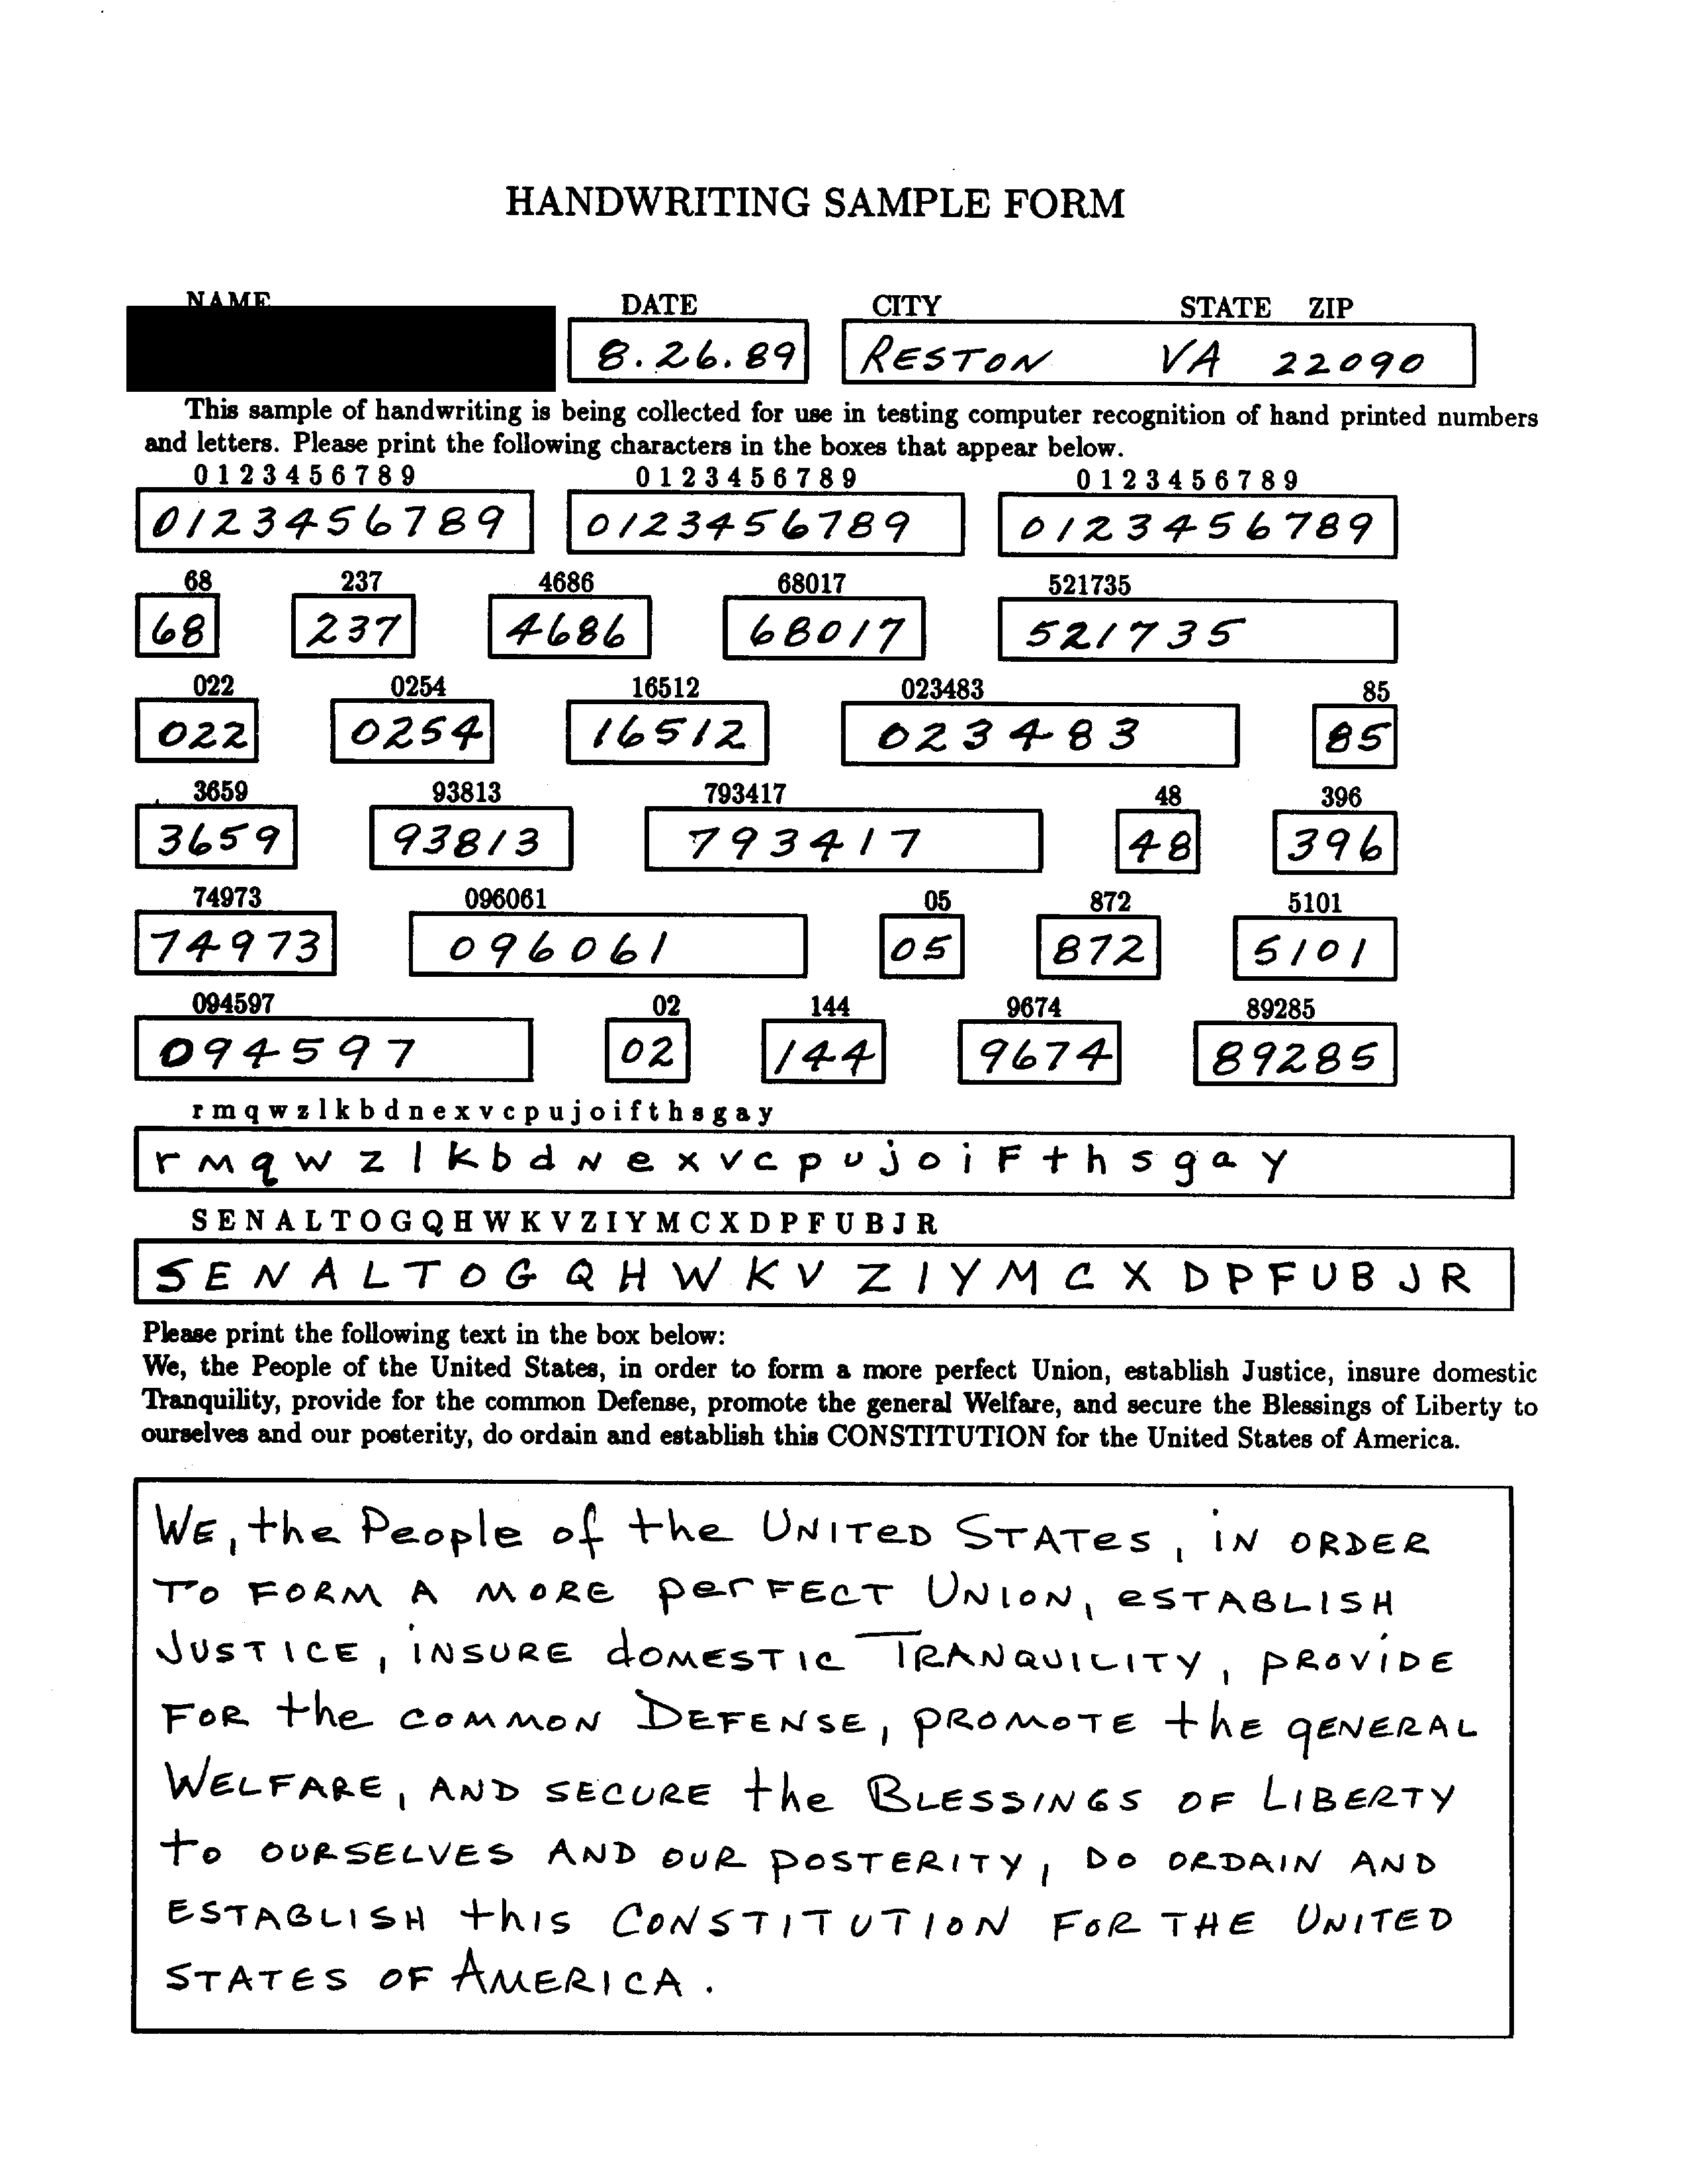 HANDWRITING SAMPLE FORM
NAME DATE CITY STATE ZIP
8.26.89 RESTON VA 22090
This sample of handwriting is being collected for use in testing computer recognition of hand printed numbers
and letters. Please print the following characters in the boxes that appear below.
0 1 2 3 4 5 6 7 8 9 0 1 2 3 4 5 6 7 8 9 0 1 2 3 4 5 6 7 8 9
0123456789 0123456789 0123456789
68 237 4686 68017 521735
68 237 4686 68017 521735
022 0254 16512 023483 85
022 0254 16512 023483 85
3659 93813 793417 48 396
3659 93813 793417 48 396
74973 096061 05 872 5101
74973 096061 05 872 5101
094597 02 144 9674 89285
094597 02 144 9674 89285
r m q w z l k b d n e x v c p u j o i f t h s g a y
r m q w z l k b d N e x v c p u j o i F t h s g a y
S E N A L T O G Q H W K V Z I Y M C X D P F U B J R
S E N A L T O G Q H W K V Z I Y M C X D P F U B J R
Please print the following text in the box below:
We, the People of the United States, in order to form a more perfect Union, establish Justice, insure domestic
Tranquility, provide for the common Defense, promote the general Welfare, and secure the Blessings of Liberty to
ourselves and our posterity, do ordain and establish this CONSTITUTION for the United States of America.
WE, the People of the UNITeD STATes, iN ORDER
TO FORM A MORE perFECT UNION, eSTABLISH
JUSTICE, iNSURE dOMESTIC TRANQUILITY, PROViDE
FOR the COMMON DEFENSE, PROMOTE thE gENERAL
WELFARE, AND SECURE the BLESSINGS OF LIBERTY
to OURSELVES AND OUR POSTERITY, DO ORDAIN AND
ESTABLISH thIS CONSTITUTION FOR THE UNITED
STATES OF AMERICA.